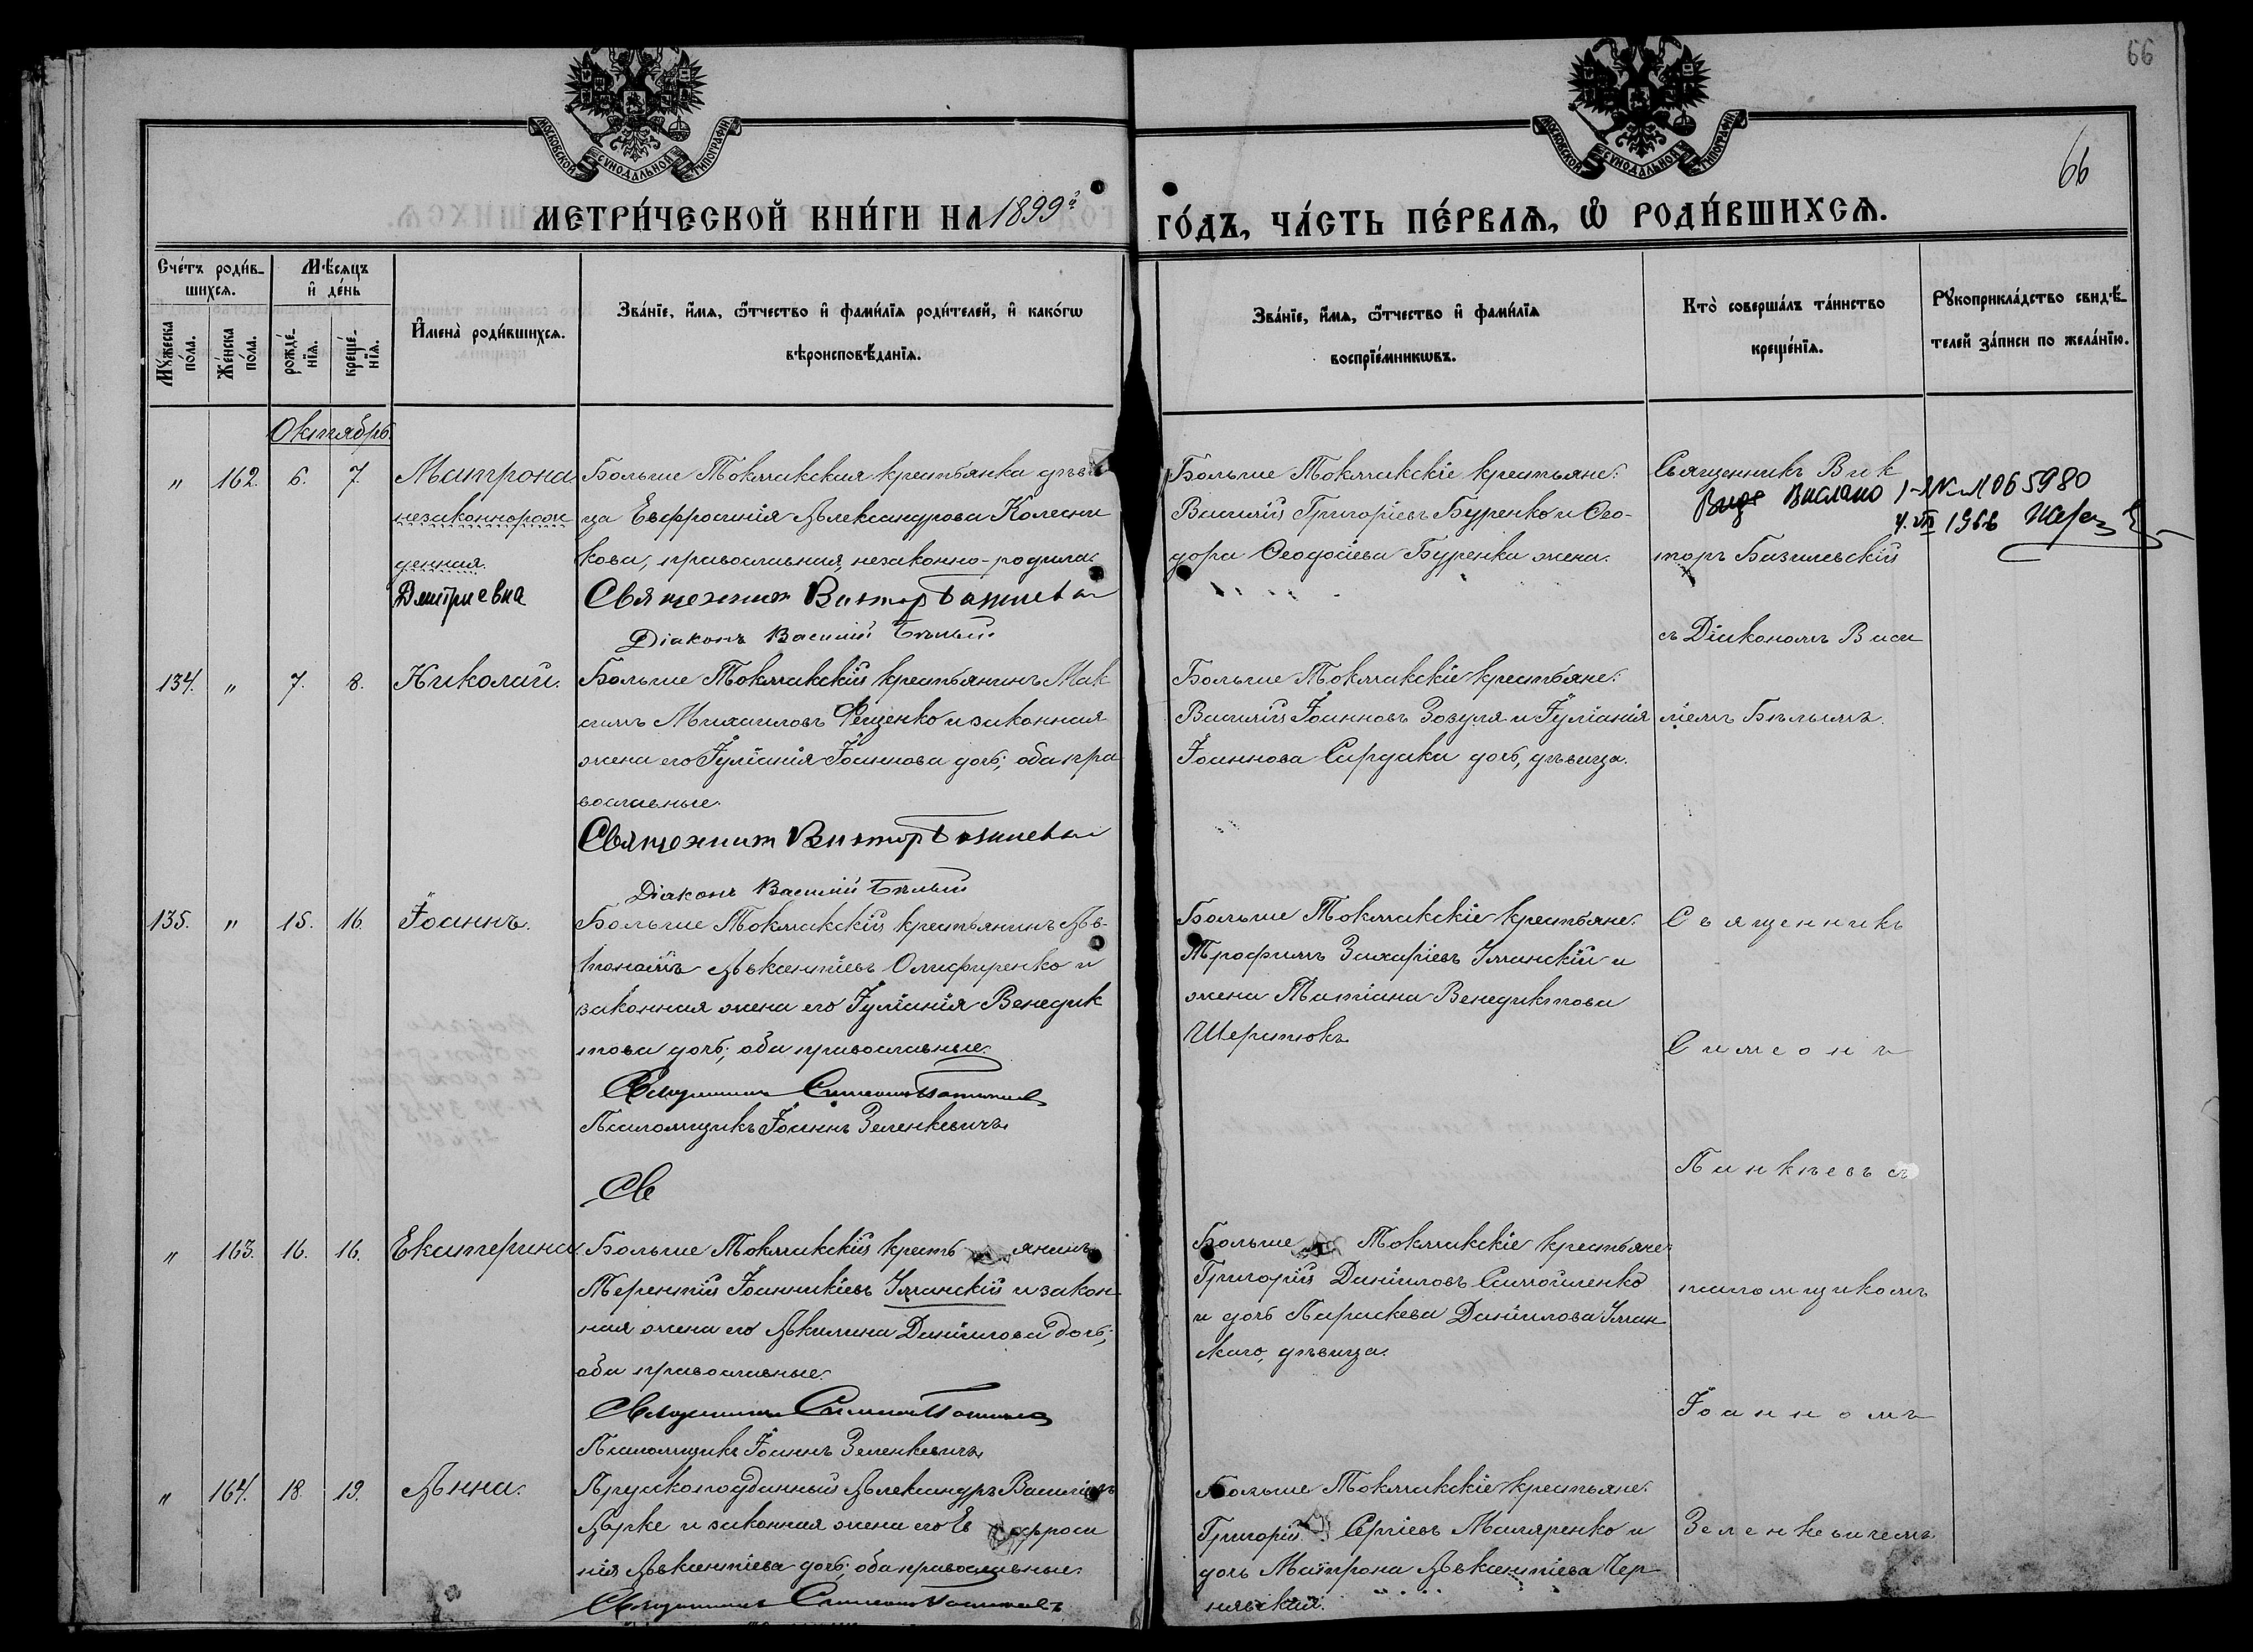 66
МОСКОВСКОЙ СѴНОДАЛЬНОЙ ТИПОГРАФІИ
МОСКОВСКОЙ СѴНОДАЛЬНОЙ ТИПОГРАФІИ
66
МЕТРИ́ЧЕСКОЙ КНИ́ГИ НА 1899й
ГО́ДЪ, ЧА́СТЬ ПЕ́РВАѦ, Ѡ РОДИ́ВШИХСѦ.
Сче́тъ роди́в-
шихсѧ.
Мꙋ́жеска по́ла.
Же́нска по́ла.
Мѣ́сѧцъ
и҆ де́нь
рожде́-нїѧ.
креще́-нїѧ.
И҆мена̀ роди́вшихсѧ.
Зва́нїе, и҆́мѧ, ѻ҆́тчество и҆ фами́лїѧ роди́телей, и҆ како́гѡ
вѣроисповѣ́данїѧ.
Зва́нїе, и҆́мѧ, ѻ҆́тчество и҆ фами́лїѧ
воспрїе́мникѡвъ.
Кто̀ соверша́лъ та́инство
креще́нїѧ.
Рꙋкоприкла́дство свидѣ́-
телей за́писи по жела́нїю.
Октябрь.
" 162. 6. 7. Матрона
незаконнорож
денная.
Дмитриевна
Больше Токмакская крестьянка дѣви
ца Евфросинія Александрова Колесни
кова, православная, незаконно-родила.
Священник Виктор Базилевский
Діаконъ Василій Бѣлый
Больше Токмакскіе крестьяне:
Василій Григоріевъ Буренко и Ѳео-
дора Ѳеодосіева Буренка жена.
Священникъ Вик
торъ Базилевскій
съ Діакономъ Васи
Выслано I-ЯК № 065980
4.VII 1966
134. " 7. 8. Николай.
Больше Токмакскій крестьянинъ Мак
симъ Михаиловъ Фещенко и законная
жена его Іуліанія Іоаннова дочь; оба пра
вославные.
Священник Виктор Базилевский
Діаконъ Василій Бѣлый
Больше Токмакскіе крестьяне:
Василій Іоанновъ Зозуля и Іуліанія
Іоаннова Сардака дочь, дѣвица.
ліемъ Бѣлымъ.
135. " 15. 16. Іоаннъ.
Больше Токмакскій крестьянинъ Ав-
тономъ Авксентіевъ Олифиренко и
законная жена его Іуліанія Венедик
това дочь; оба православные.
Священникъ Симеонъ Панкѣевъ
Псаломщикъ Іоаннъ Зеленкевичъ
Св
Больше Токмакскіе крестьяне:
Трофимъ Захаріевъ Уманскій и
жена Татіана Венедиктова
Шерстюкъ
Священникъ
Симеонъ
Панкѣевъ съ
" 163. 16. 16. Екатерина.
Больше Токмакскій кресть янинъ
Терентій Іоанникіевъ Уманскій и закон
ная жена его Акилина Даніилова дочь;
оба православные.
Священникъ Симеонъ Панкѣевъ
Псаломщикъ Іоаннъ Зеленкевичъ
Больше Токмакскіе крестьяне:
Григорій Даніиловъ Самойленко
и дочь Параскева Даніилова Уман
скаго, дѣвица.
псаломщикомъ
Іоанномъ
" 164. 18. 19. Анна.
Прусскоподданный Александръ Василіевъ
Арке и законная жена его Ев фроси
нія Авксентіева дочь; оба православные.
Священникъ Симеонъ Панкѣевъ
Больше Токмакскіе крестьяне:
Григорій Сергіевъ Маляренко и
дочь Матрона Авксентіева Чер
нявская.
Зеленкевичемъ